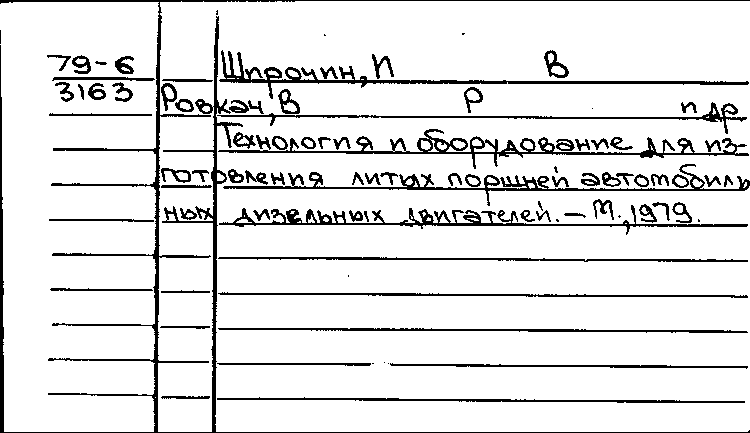 79-6 Шпрочин, И В
3163 Ровкач, В Р и др
Технология и оборудование для из-
готовления литых поршней автомобиль
ных дизельных двигателей. – М., 1979.